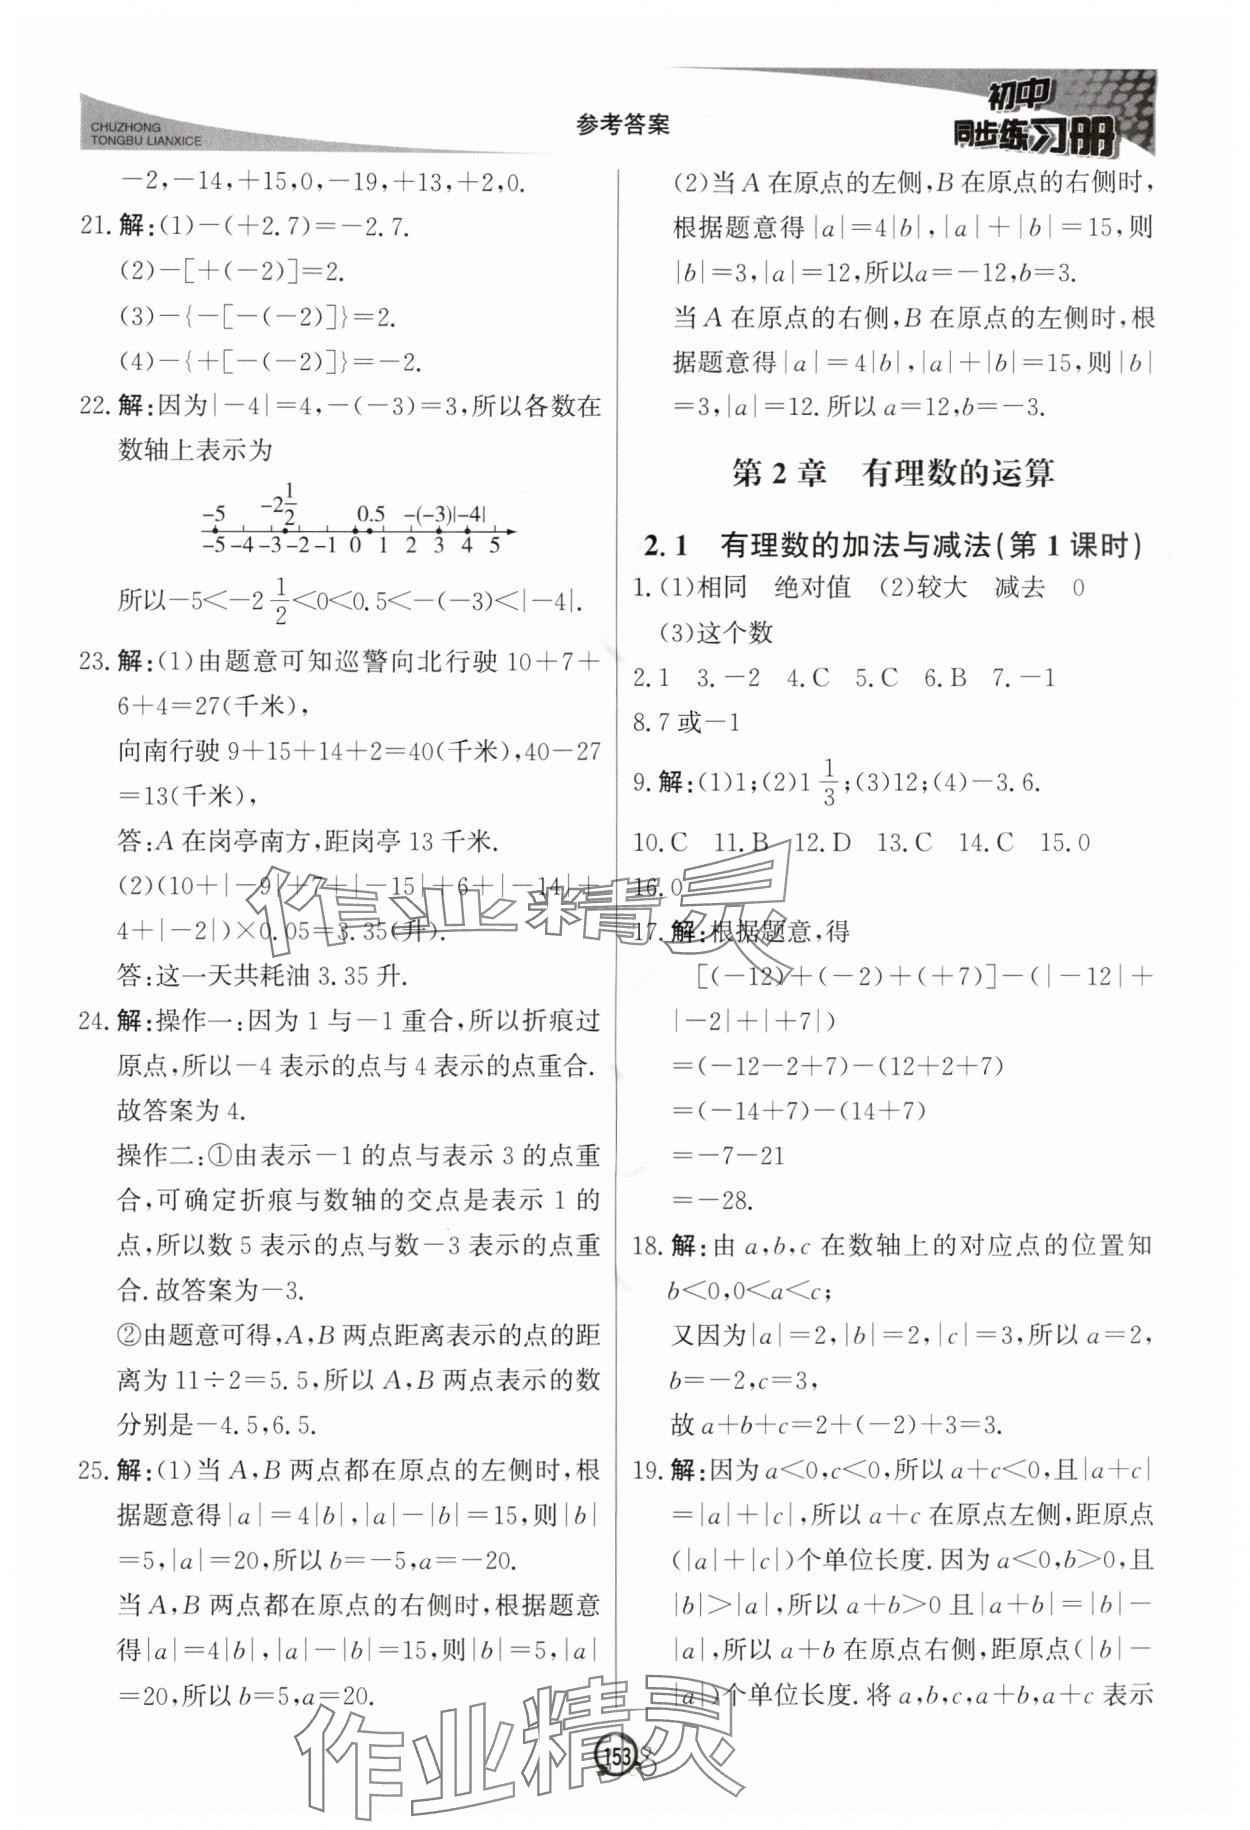 CHUZHONG
TONGBU LIANXICE
参考答案
初中
同步练习册
-2,-14,+15,0,-19,+13,+2,0.
21.解:(1)-(+2.7)=-2.7.
(2)-[+(-2)]=2.
(3)-{-[-(-2)]}=2.
(4)-{+[-(-2)]}=-2.
22.解:因为|-4|=4,-(-3)=3,所以各数在
数轴上表示为
-5 -2 1/2 0.5 -(-3)|-4|
-5 -4 -3 -2 -1 0 1 2 3 4 5
所以-5<-2 1/2<0<0.5<-(-3)<|-4|.
23.解:(1)由题意可知巡警向北行驶10+7+
6+4=27(千米),
向南行驶9+15+14+2=40(千米),40-27
=13(千米),
答:A在岗亭南方,距岗亭13千米.
(2)(10+|-9|+7+|-15|+6+|-14|+
4+|-2|)×0.05=3.35(升).
答:这一天共耗油3.35升.
24.解:操作一:因为1与-1重合,所以折痕过
原点,所以-4表示的点与4表示的点重合.
故答案为4.
操作二:①由表示-1的点与表示3的点重
合,可确定折痕与数轴的交点是表示1的
点,所以数5表示的点与数-3表示的点重
合.故答案为-3.
②由题意可得,A,B两点距离表示的点的距
离为11÷2=5.5,所以A,B两点表示的数
分别是-4.5,6.5.
25.解:(1)当A,B两点都在原点的左侧时,根
据题意得|a|=4|b|,|a|-|b|=15,则|b|
=5,|a|=20,所以b=-5,a=-20.
当A,B两点都在原点的右侧时,根据题意
得|a|=4|b|,|a|-|b|=15,则|b|=5,|a|
=20,所以b=5,a=20.
(2)当A在原点的左侧,B在原点的右侧时,
根据题意得|a|=4|b|,|a|+|b|=15,则
|b|=3,|a|=12,所以a=-12,b=3.
当A在原点的右侧,B在原点的左侧时,根
据题意得|a|=4|b|,|a|+|b|=15,则|b|
=3,|a|=12.所以a=12,b=-3.
第2章 有理数的运算
2.1 有理数的加法与减法(第1课时)
1.(1)相同 绝对值 (2)较大 减去 0
(3)这个数
2.1 3.-2 4.C 5.C 6.B 7.-1
8.7或-1
9.解:(1)1;(2)1 1/3;(3)12;(4)-3.6.
10.C 11.B 12.D 13.C 14.C 15.0
16.0
17.解:根据题意,得
[(-12)+(-2)+(+7)]-(|-12|+
|-2|+|+7|)
=(-12-2+7)-(12+2+7)
=(-14+7)-(14+7)
=-7-21
=-28.
18.解:由a,b,c在数轴上的对应点的位置知
b<0,0<a<c;
又因为|a|=2,|b|=2,|c|=3,所以a=2,
b=-2,c=3,
故a+b+c=2+(-2)+3=3.
19.解:因为a<0,c<0,所以a+c<0,且|a+c|
=|a|+|c|,所以a+c在原点左侧,距原点
(|a|+|c|)个单位长度.因为a<0,b>0,且
|b|>|a|,所以a+b>0且|a+b|=|b|-
|a|,所以a+b在原点右侧,距原点(|b|-
|a|)个单位长度.将a,b,c,a+b,a+c表示
作业精灵
作业精灵
153